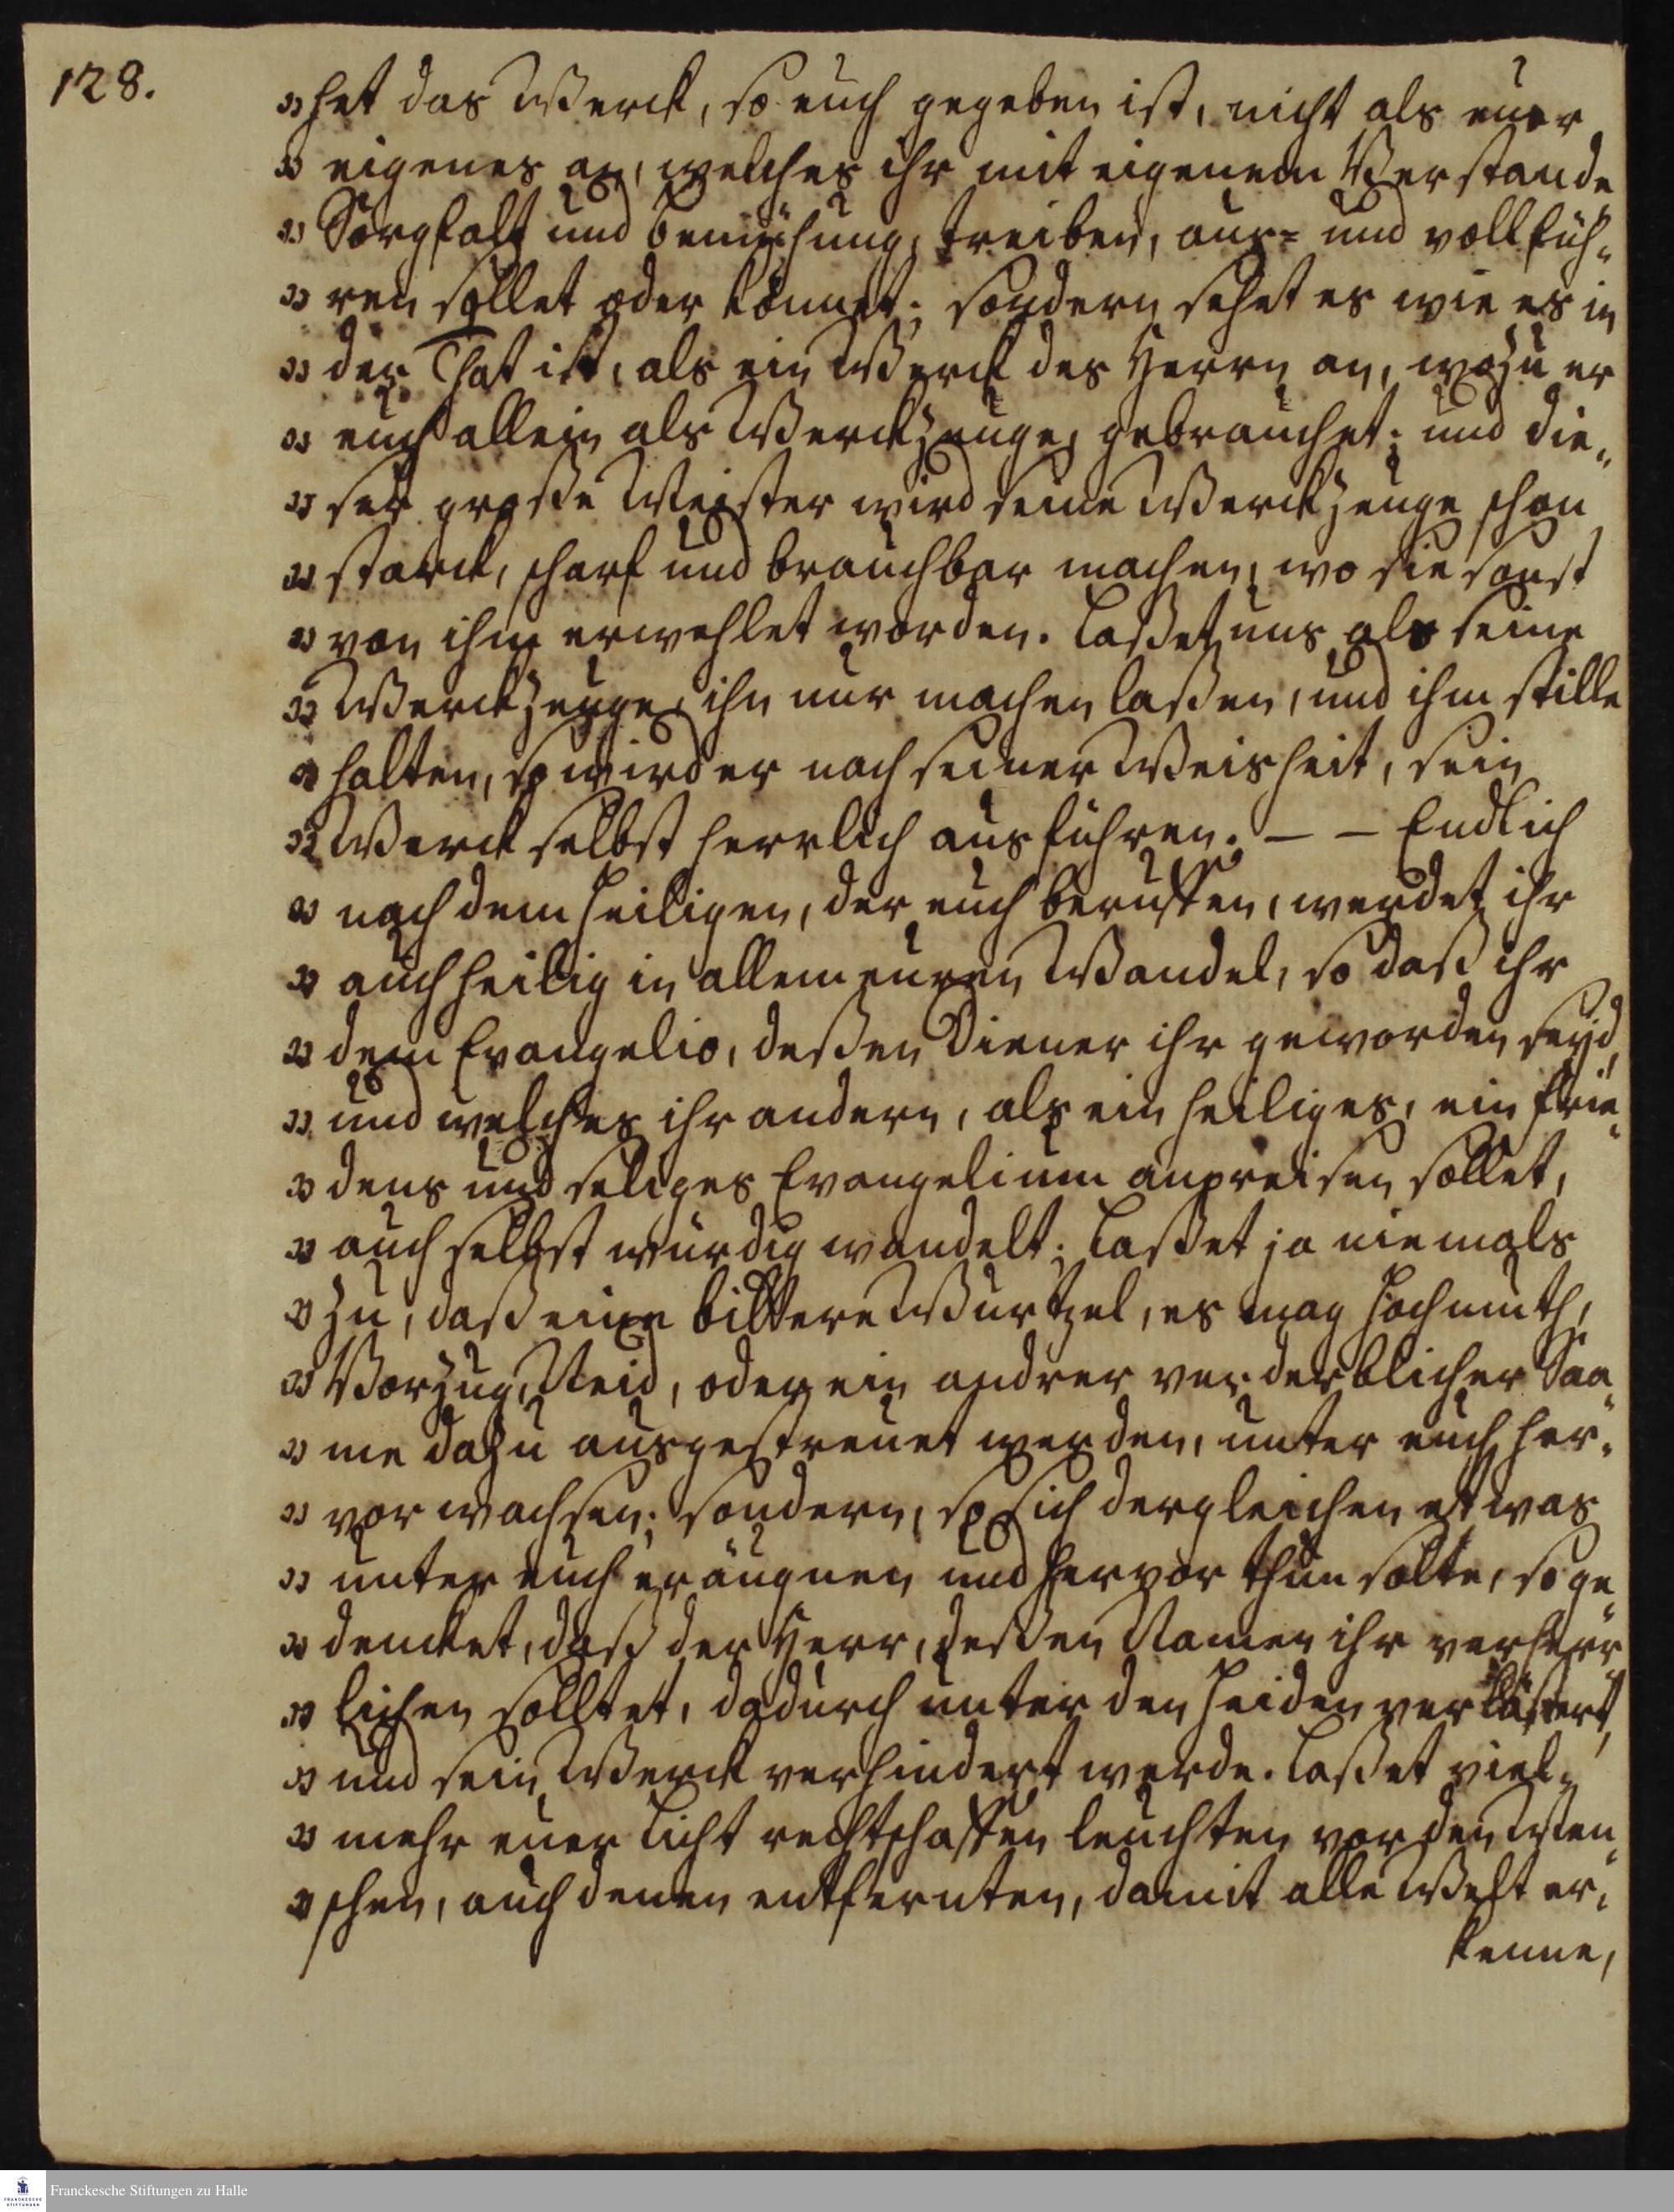 128.
„het das Werck, so euch gegeben ist, nicht als euer
„eigenes an, welches ihr mit eigenem Verstande
„Sorgfalt und bemühung, treiben, aus= und vollfüh„
„ren sollet oder könnet; sondern sehet es wie es in
„der That ist, als ein Werck des Herrn an, wozu er
„euch allein als Werckzeuge, gebrauchet; und die„
„ser große Meister wird seine Werckzeuge schon
„starck, scharf und brauchbar machen, wo sie sonst
„von ihm erwehlet worden. Laßet uns als seine
„Werckzeuge, ihn nur machen laßen, und ihm stille
„halten, so wird er nach seiner Weisheit, sein
„Werck selbst herrlich ausführen. – – Endlich
„nach dem Heiligen, der euch beruffen, werdet ihr
„auch heilig in allem euren Wandel, so daß ihr
„dem Evangelio, deßen Diener ihr geworden seyd,
„und welches ihr andern, als ein heiliges, ein frie„
„dens und seliges Evangelium anpreisen sollet,
„auch selbst würdig wandelt; Laßet ja niemals
„zu, daß eine bittere Wurtzel, es mag Hochmuth,
„Vorzug, Neid, oder ein andrer verderblicher Saa„
„me dazu ausgestreuet werden, unter euch her„
„vor wachsen; sondern, so sich dergleichen etwas
„unter euch eräugnen und hervor thun solte, so ge„
„dencket, daß der Herr, deßen Namen ihr verherr„
„lichen solltet, dadurch unter den Heiden verlästert,
„und sein Werck verhindert werde. Laßet viel„
„mehr euer Licht rechtschaffen leuchten vor den Men„
„schen, auch denen entfernten, damit alle Welt er„
kenne,
Franckesche Stiftungen zu Halle
FRANCKESCHE
STIFTUNGEN